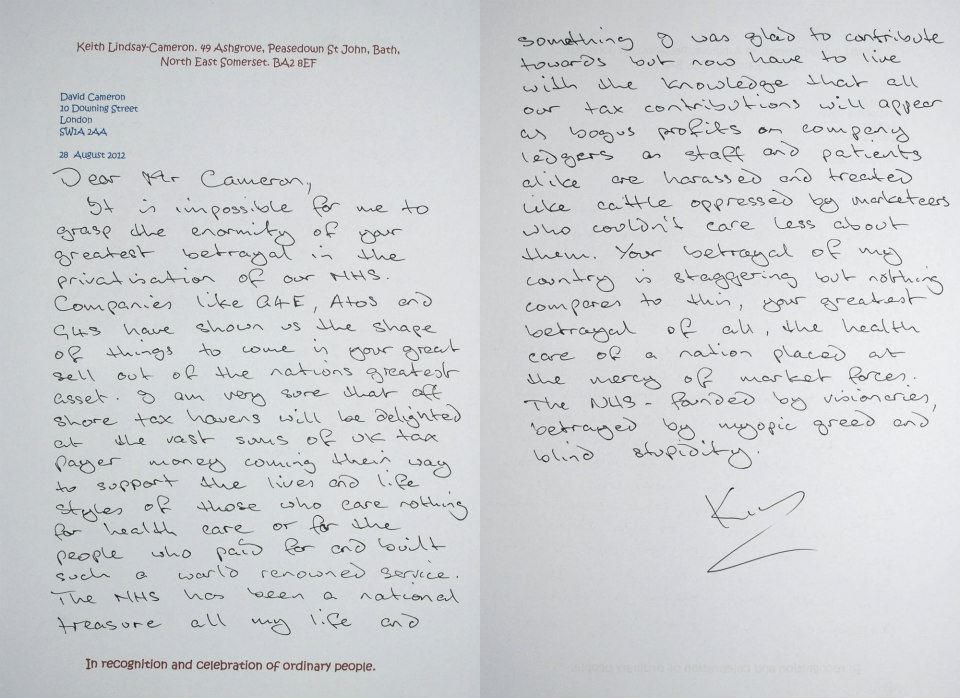 Keith Lindsay-Cameron. 49 Ashgrove, Peasedown St John, Bath,
North East Somerset. BA2 8EF
David Cameron
10 Downing Street
London
SW1A 2AA
28 August 2012
Dear Mr Cameron,
It is impossible for me to
grasp the enormity of your
greatest betrayal in the
privatisation of our NHS.
Companies like A4E, Atos and
G4S have shown us the shape
of things to come in your great
sell out of the nations greatest
asset. I am very sure that off
shore tax havens will be delighted
at the vast sums of UK tax
payer money coming their way
to support the lives and life
styles of those who care nothing
for health care or for the
people who paid for and built
such a world renowned service.
The NHS has been a national
treasure all my life and
In recognition and celebration of ordinary people.
something I was glad to contribute
towards but now have to live
with the knowledge that all
our tax contributions will appear
as bogus profits on company
ledgers as staff and patients
alike are harassed and treated
like cattle oppressed by marketeers
who couldn't care less about
them. Your betrayal of my
country is staggering but nothing
compares to this, your greatest
betrayal of all, the health
care of a nation placed at
the mercy of market forces.
The NHS - founded by visionaries,
betrayed by myopic greed and
blind stupidity.